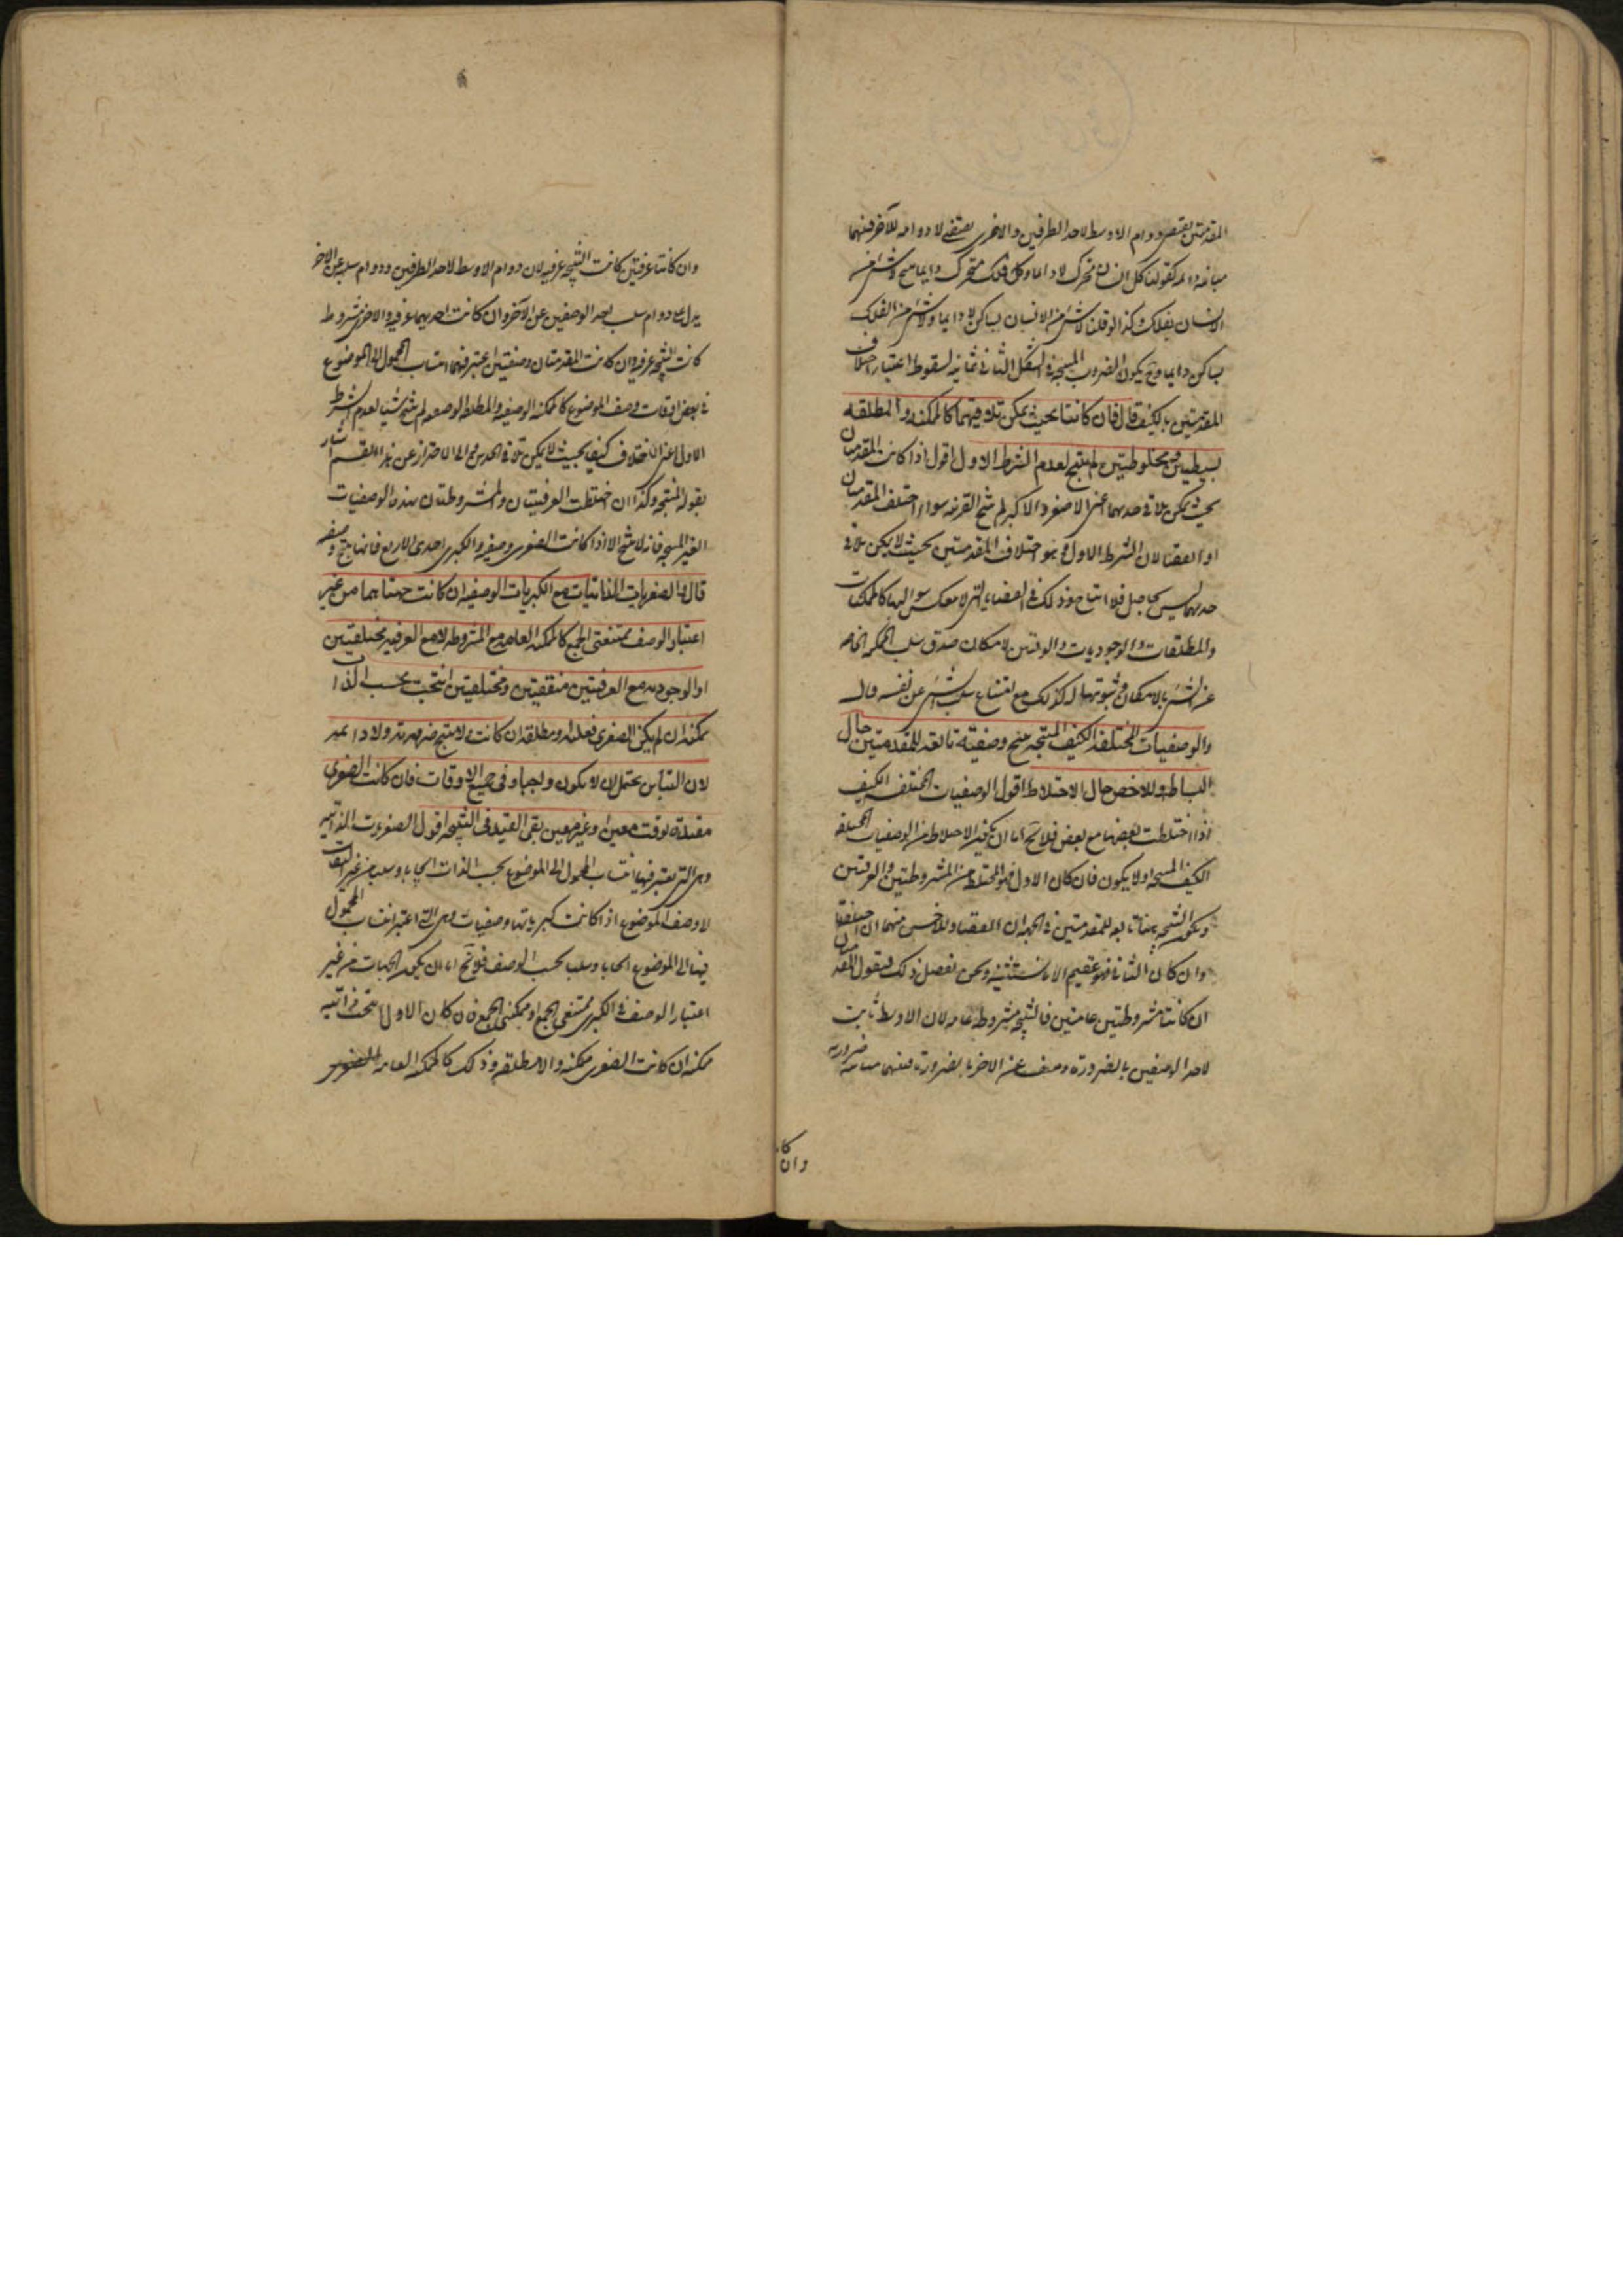 المقدمتين يقتضي دوام الاوسط لاحد الطرفين والاخرى يقتضي لا دوامه للآخر فبينهما
مباينة دائمة كقولنا كل انسان متحرك لا دائما وكل فلك متحرك دايما ينتج لا شئ من
الانسان بفلك وكذا لو قلنا لا شئ من الانسان بساكن لا دايما ولا شئ من الفلك
بساكن دايما وح يكون الضروب المنتجة في الشكل الثاني ثمانية لسقوط اعتبار اختلاف
المقدمتين بالكيف قال فان كانتا بحيث يمكن تلاقيهما كالممكنة والمطلقة
بسيطتين ومخلوطتين لم ينتج لعدم الشرط الاول اقول اذا كانت المقدمتان
بحيث يمكن تلاقي حديهما اعنى الاصغر والاكبر لم ينتج القرينة سواء اختلف المقدمتان
او اتفقتا لان الشرط الاول وهو اختلاف المقدمتين بحيث لا يمكن تلاقي
حديهما ليس بحاصل فلا انتاج وذلك في القضايا التي لا ينعكس سوالبها كالممكنات
والمطلقات والوجوديات والوقتيتين لامكان صدق سلب الممكنة الخاصة
عن الشئ بالامكان وثبوتها له كذلك مع امتناع سلب الشئ عن نفسه قال
والوصفيات المختلفة الكيف المنتجة ينتج وصفية تابعة للمقدمتين حال
البساطة وللاخص حال الاختلاط اقول الوصفيات المختلفة الكيف
اذا اختلطت بعضها مع بعض فلا يخ اما ان يكون الاختلاط من الوصفيات المختلفة
الكيف المنتجة او لا يكون فان كان الاول فهو المختلط من المشروطتين والعرفيتين
ويكون النتيجة هناك تابعة للمقدمتين في الجهة ان اتفقتا وللاخس منهما ان اختلفتا
وان كان الثاني فهو عقيم الا ما نستثنيه ونحن نفصل ذلك فنقول المقدمتان
ان كانتا مشروطتين عامتين فالنتيجة مشروطة عامة لان الاوسط ثابت
لاحد الوصفين بالضرورة ومنفى عن الاخر بالضرورة فبينهما مباينة ضرورية
وان كا
وان كانتا عرفيتين كانت النتيجة عرفية لان دوام الاوسط لاحد الطرفين ودوام سلبه عن الاخر
يدل على دوام سلب احد الوصفين عن الآخر وان كانت احديهما عرفية والاخرى مشروطة
كانت النتيجة عرفية وان كانت المقدمتان وصفيتين اعتبر فيهما انتساب المحمول الى الموضوع
في بعض اوقات وصف الموضوع كالممكنة الوصفية والمطلقة الوصفية لم ينتج شيئا لعدم الشرط
الاول اعنى اختلاف كيف بحيث لا يمكن تلاقي الحدين والى الاحتراز عن هذا القسم اشار
بقوله المنتجة وكذا ان اختلطت العرفيتان والمشروطتان بهذه الوصفيات
الغير المنتجة فانه لا ينتج الا اذا كانت الصغرى وصفية والكبرى احدى الاربع فانها ينتج وصفية
قال والصغريات الذاتيات مع الكبريات الوصفية ان كانت جهتاهما من غير
اعتبار الوصف ممتنعتى الجمع كالممكنة العامة مع المشروطة لا مع العرفية مختلفتين
او الوجودية مع العرفيتين متفقتين ومختلفتين انتجت بحسب الذات
ممكنة ان لم يكن الصغرى فعلية ومطلقة ان كانت ولا ينتج ضرورية ولا دائمة
لان التباين يحتمل ان لا يكون واجبا وفى جميع الاوقات فان كانت الصغرى
مقيدة بوقت معين او غير معين بقى القيد فى النتيجة اقول الصغريات الذاتية
وهى التى يعتبر فيها انتساب المحمول الى الموضوع بحسب الذات ايجابا وسلبا من غير التفات
لا وصف الموضوع اذا كانت كبرياتها وصفيات وهى التى اعتبر انتساب المحمول
فيها الى الموضوع ايجابا وسلبا بحسب الوصف فلا يخ اما ان يكون الجهات من غير
اعتبار الوصف في الكبرى ممتنعى الجمع او ممكنى الجمع فان كان الاول انتجت ذاتية
ممكنة ان كانت الصغرى ممكنة والا مطلقة وذلك كالممكنة العامة الصغرى